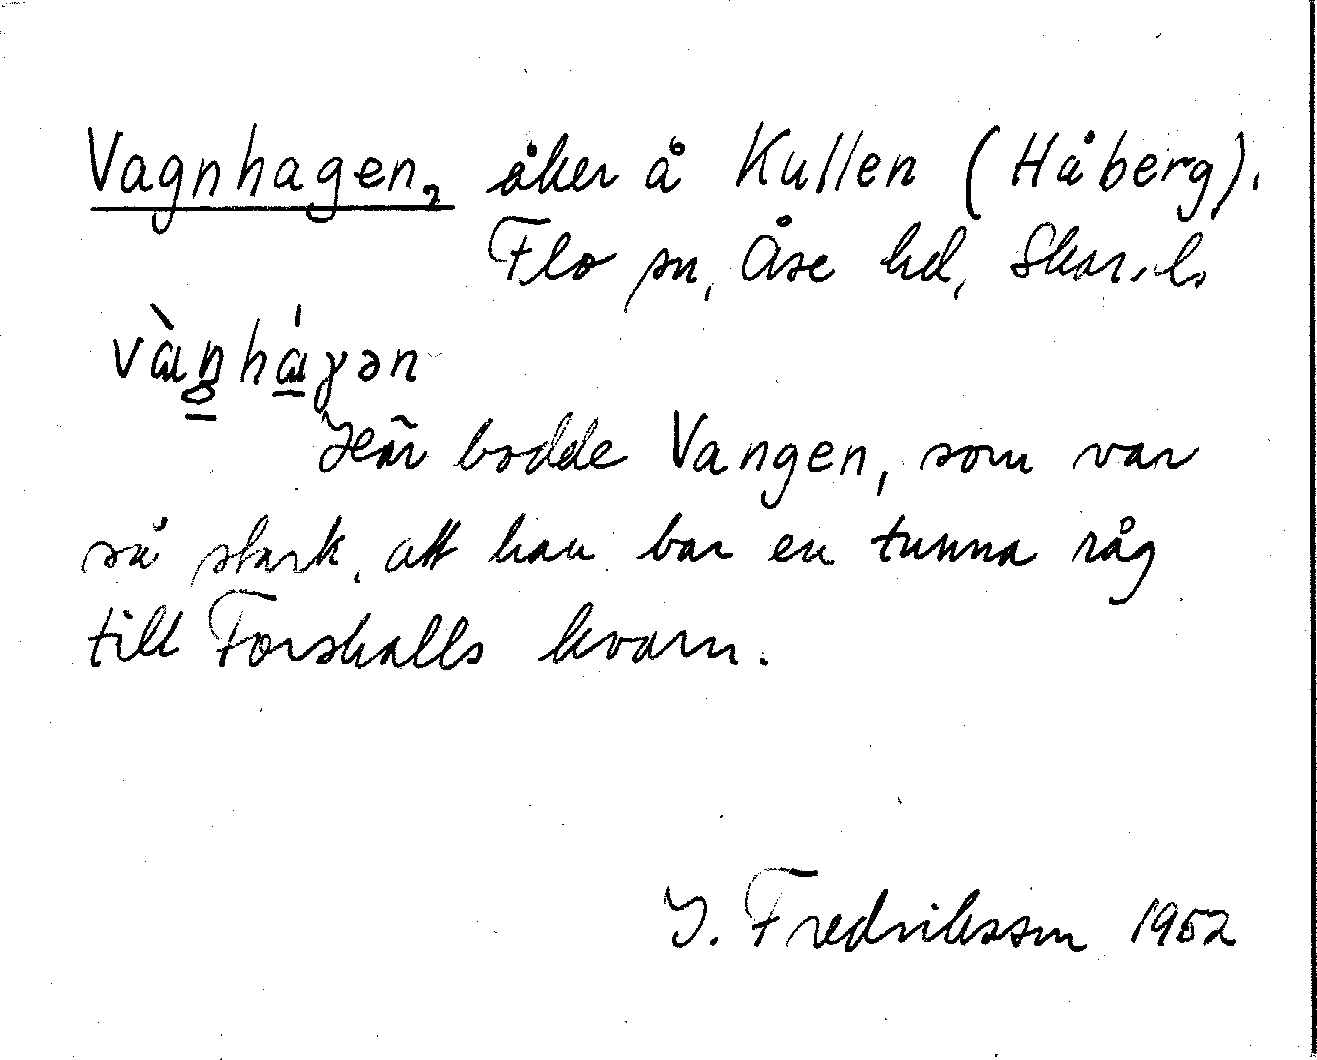 Vagnhagen, åker å Kullen (Håberg).
Flo sn, Åse hd, Skar. l.
vàn̥háɣən
Här bodde Vangen, som var
så stark, att han bar en tunna råg
till Forshalls kvarn.
I. Fredriksson 1952